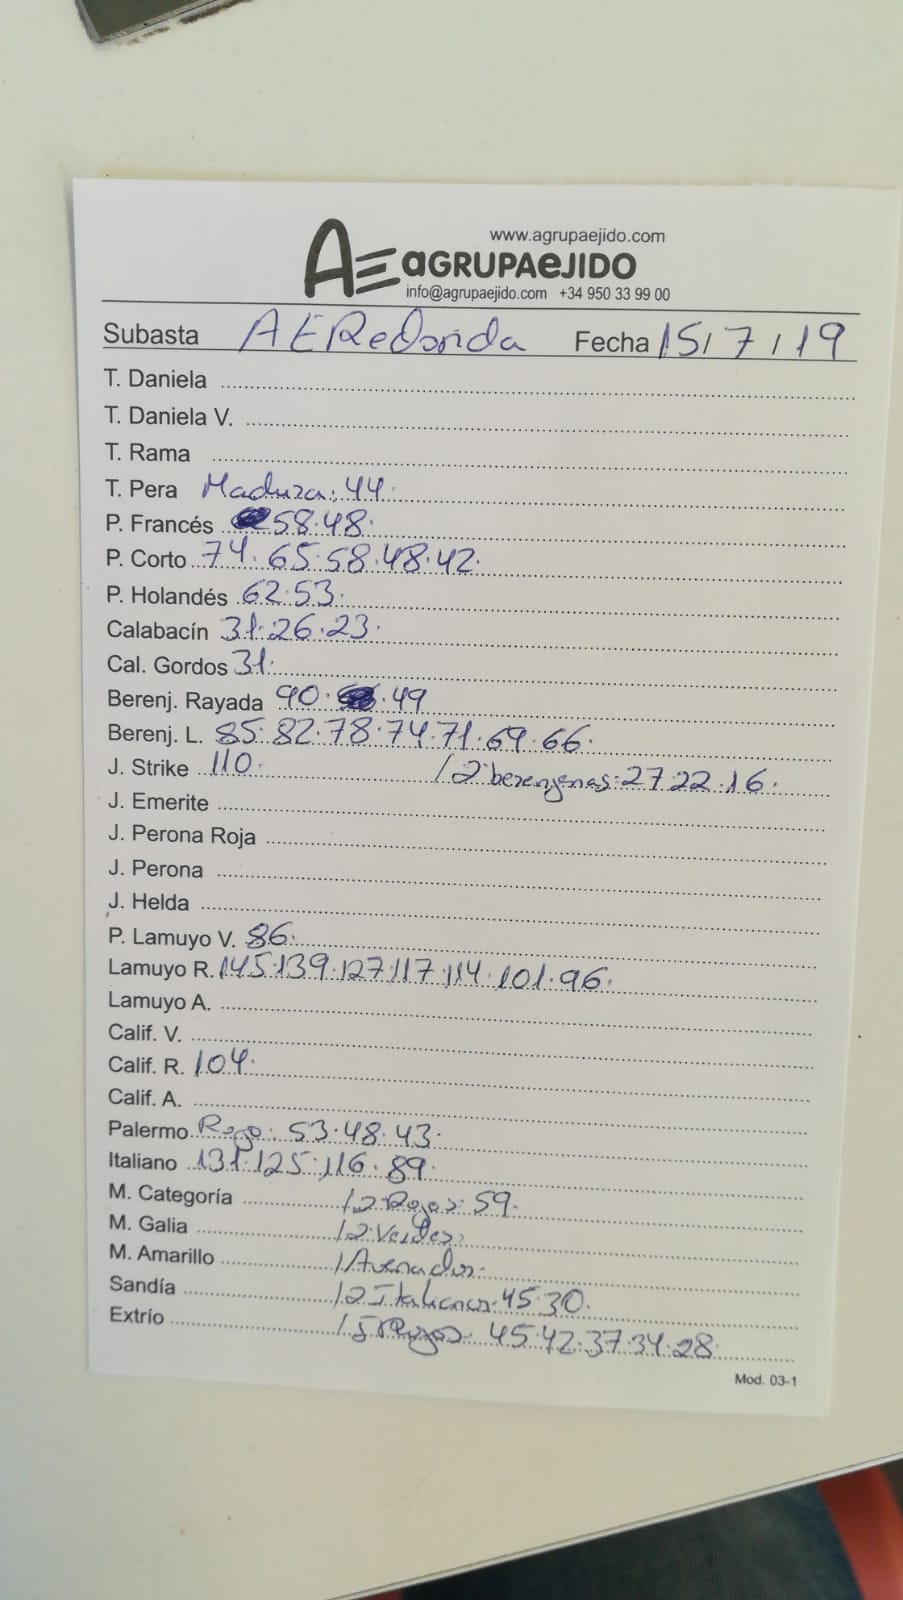 www.agrupaejido.com
AE aGRUPAeJIDO
info@agrupaejido.com +34 950 33 99 00
Subasta AERedonda Fecha 15/7/19
T. Daniela
T. Daniela V.
T. Rama
T. Pera Madura: 44.
P. Francés 58.48.
P. Corto 74.65.58.48.42.
P. Holandés 62.53.
Calabacín 31.26.23.
Cal. Gordos 31.
Berenj. Rayada 90. .49
Berenj. L. 85.82.78.74.71.69.66.
J. Strike 110. /2ªberenjenas:27.22.16.
J. Emerite
J. Perona Roja
J. Perona
J. Helda
P. Lamuyo V. 86.
Lamuyo R. 145.139.127.117.114.101.96.
Lamuyo A.
Calif. V.
Calif. R. 104.
Calif. A.
Palermo Rojo: 53.48.43.
Italiano 131.125.116.89.
M. Categoría /2ªRojos: 59.
M. Galia /2ªVerdes:
M. Amarillo /Asurcados:
Sandía /2ªItalianos.45.30.
Extrío / Rojos. 45.42.37.34.28.
Mod. 03-1